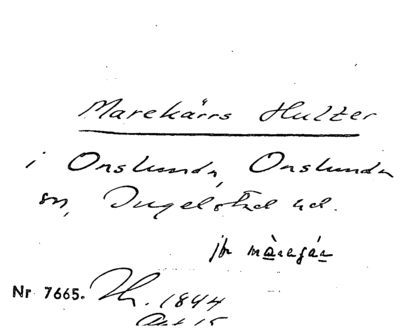 Marekärrs Hulter
i Onslunda, Onslunda
sn, Ingelstad hd.
jfr màregár
Nr 7665. Th. 1844
Akt 15